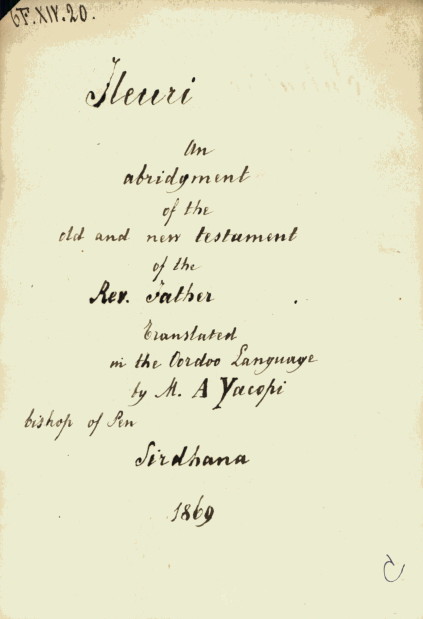 6F.XIV.20.
Fleuri
An
abridgment
of the
old and new testament
of the
Rev. Father
Translated
in the Oordoo Language
by M. A Yacopi
bishop of Pen
Sirdhana
1869